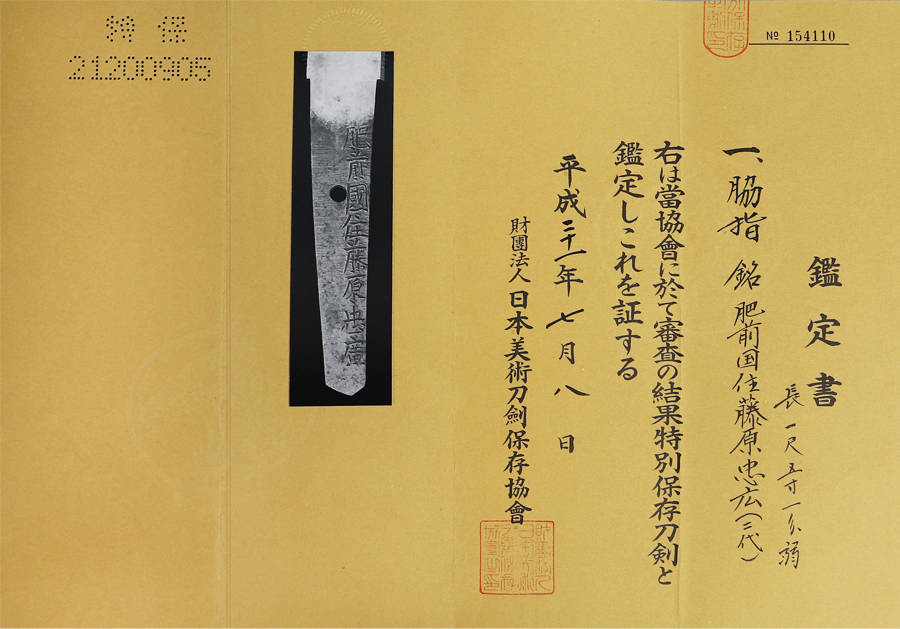 № 154110
鑑定書
一、脇指 銘 肥前国住藤原忠広(二代)
長一尺五寸一分弱
右は當協會に於て審査の結果特別保存刀剣と
鑑定しこれを証する
平成二十一年七月八日
財團法人日本美術刀劍保存協會
肥前國住藤原忠廣
特保
21200905